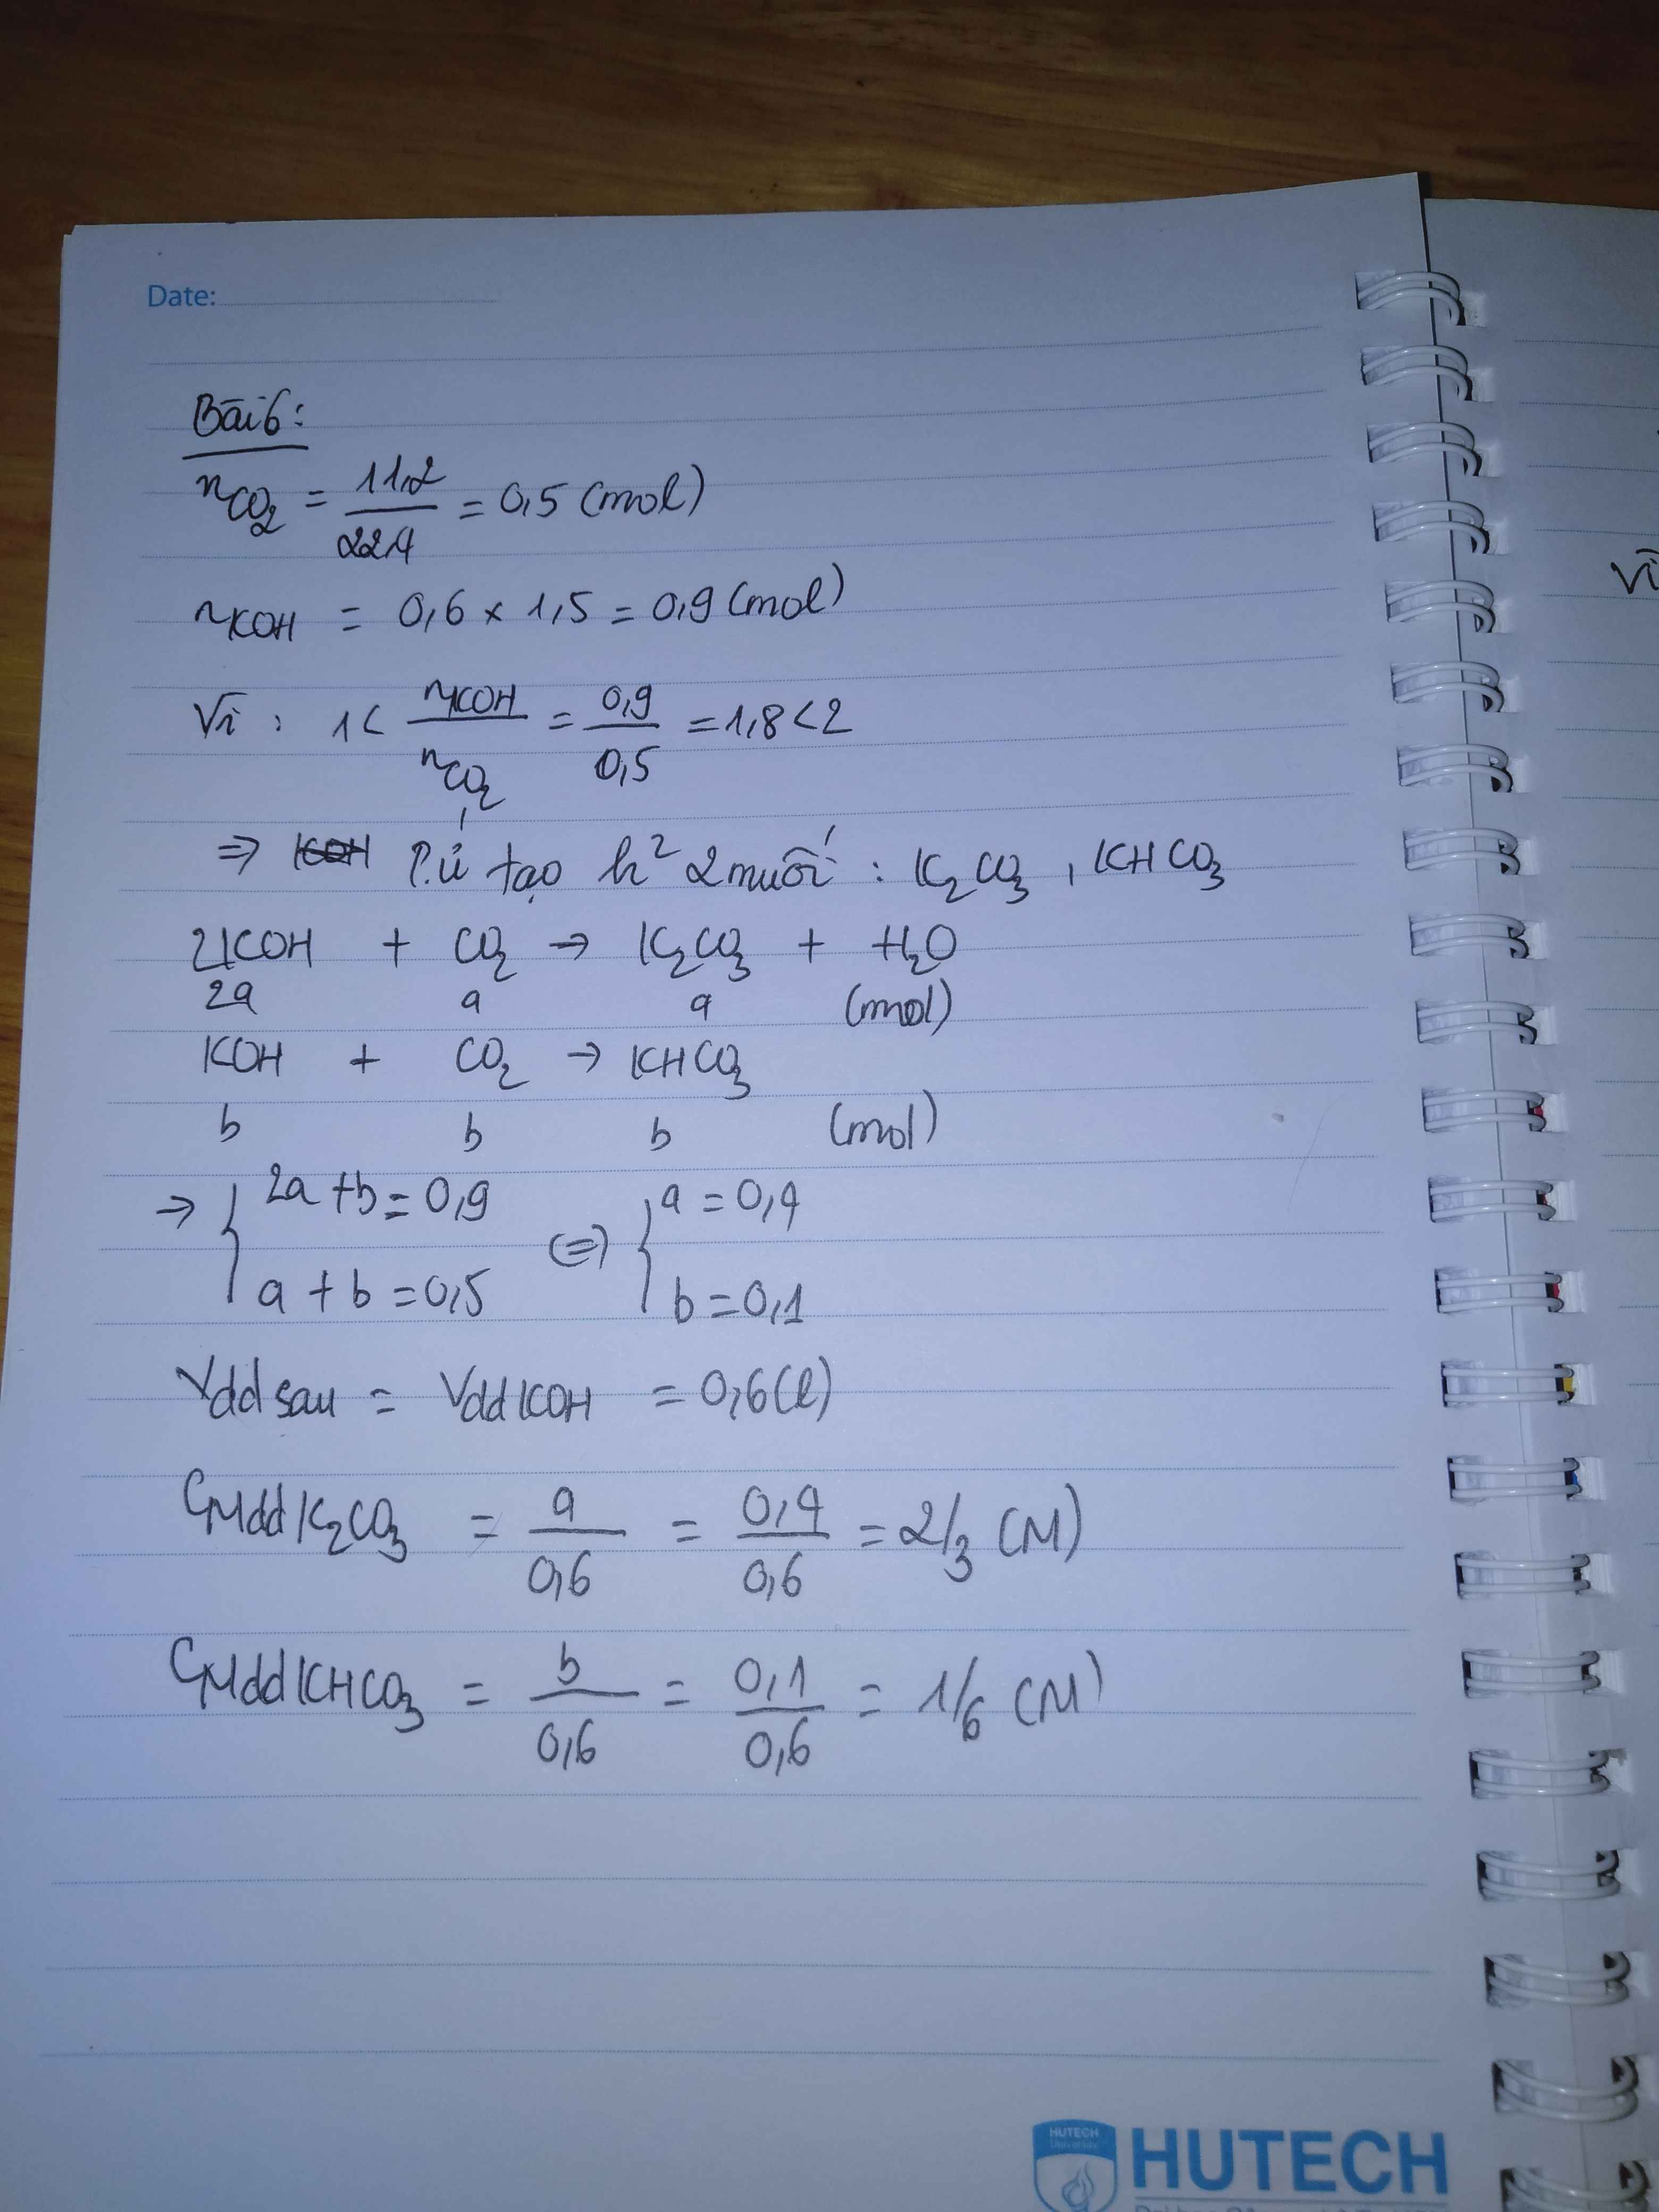 Date:
Bài 6:
nCO2 = 11,2 / 22,4 = 0,5 (mol)
nKOH = 0,6 × 1,5 = 0,9 (mol)
Vì : 1 < nKOH / nCO2 = 0,9 / 0,5 = 1,8 < 2
Vì
⇒ P.ứ tạo h² 2 muối : K2CO3 , KHCO3
2KOH + CO2 → K2CO3 + H2O
2a a a (mol)
KOH + CO2 → KHCO3
b b b (mol)
→ { 2a + b = 0,9 (=) { a = 0,4
a + b = 0,5 b = 0,1
Vdd sau = Vdd KOH = 0,6 (l)
CMdd K2CO3 = a / 0,6 = 0,4 / 0,6 = 2/3 (M)
CMdd KHCO3 = b / 0,6 = 0,1 / 0,6 = 1/6 (M)
HUTECH
HUTECH